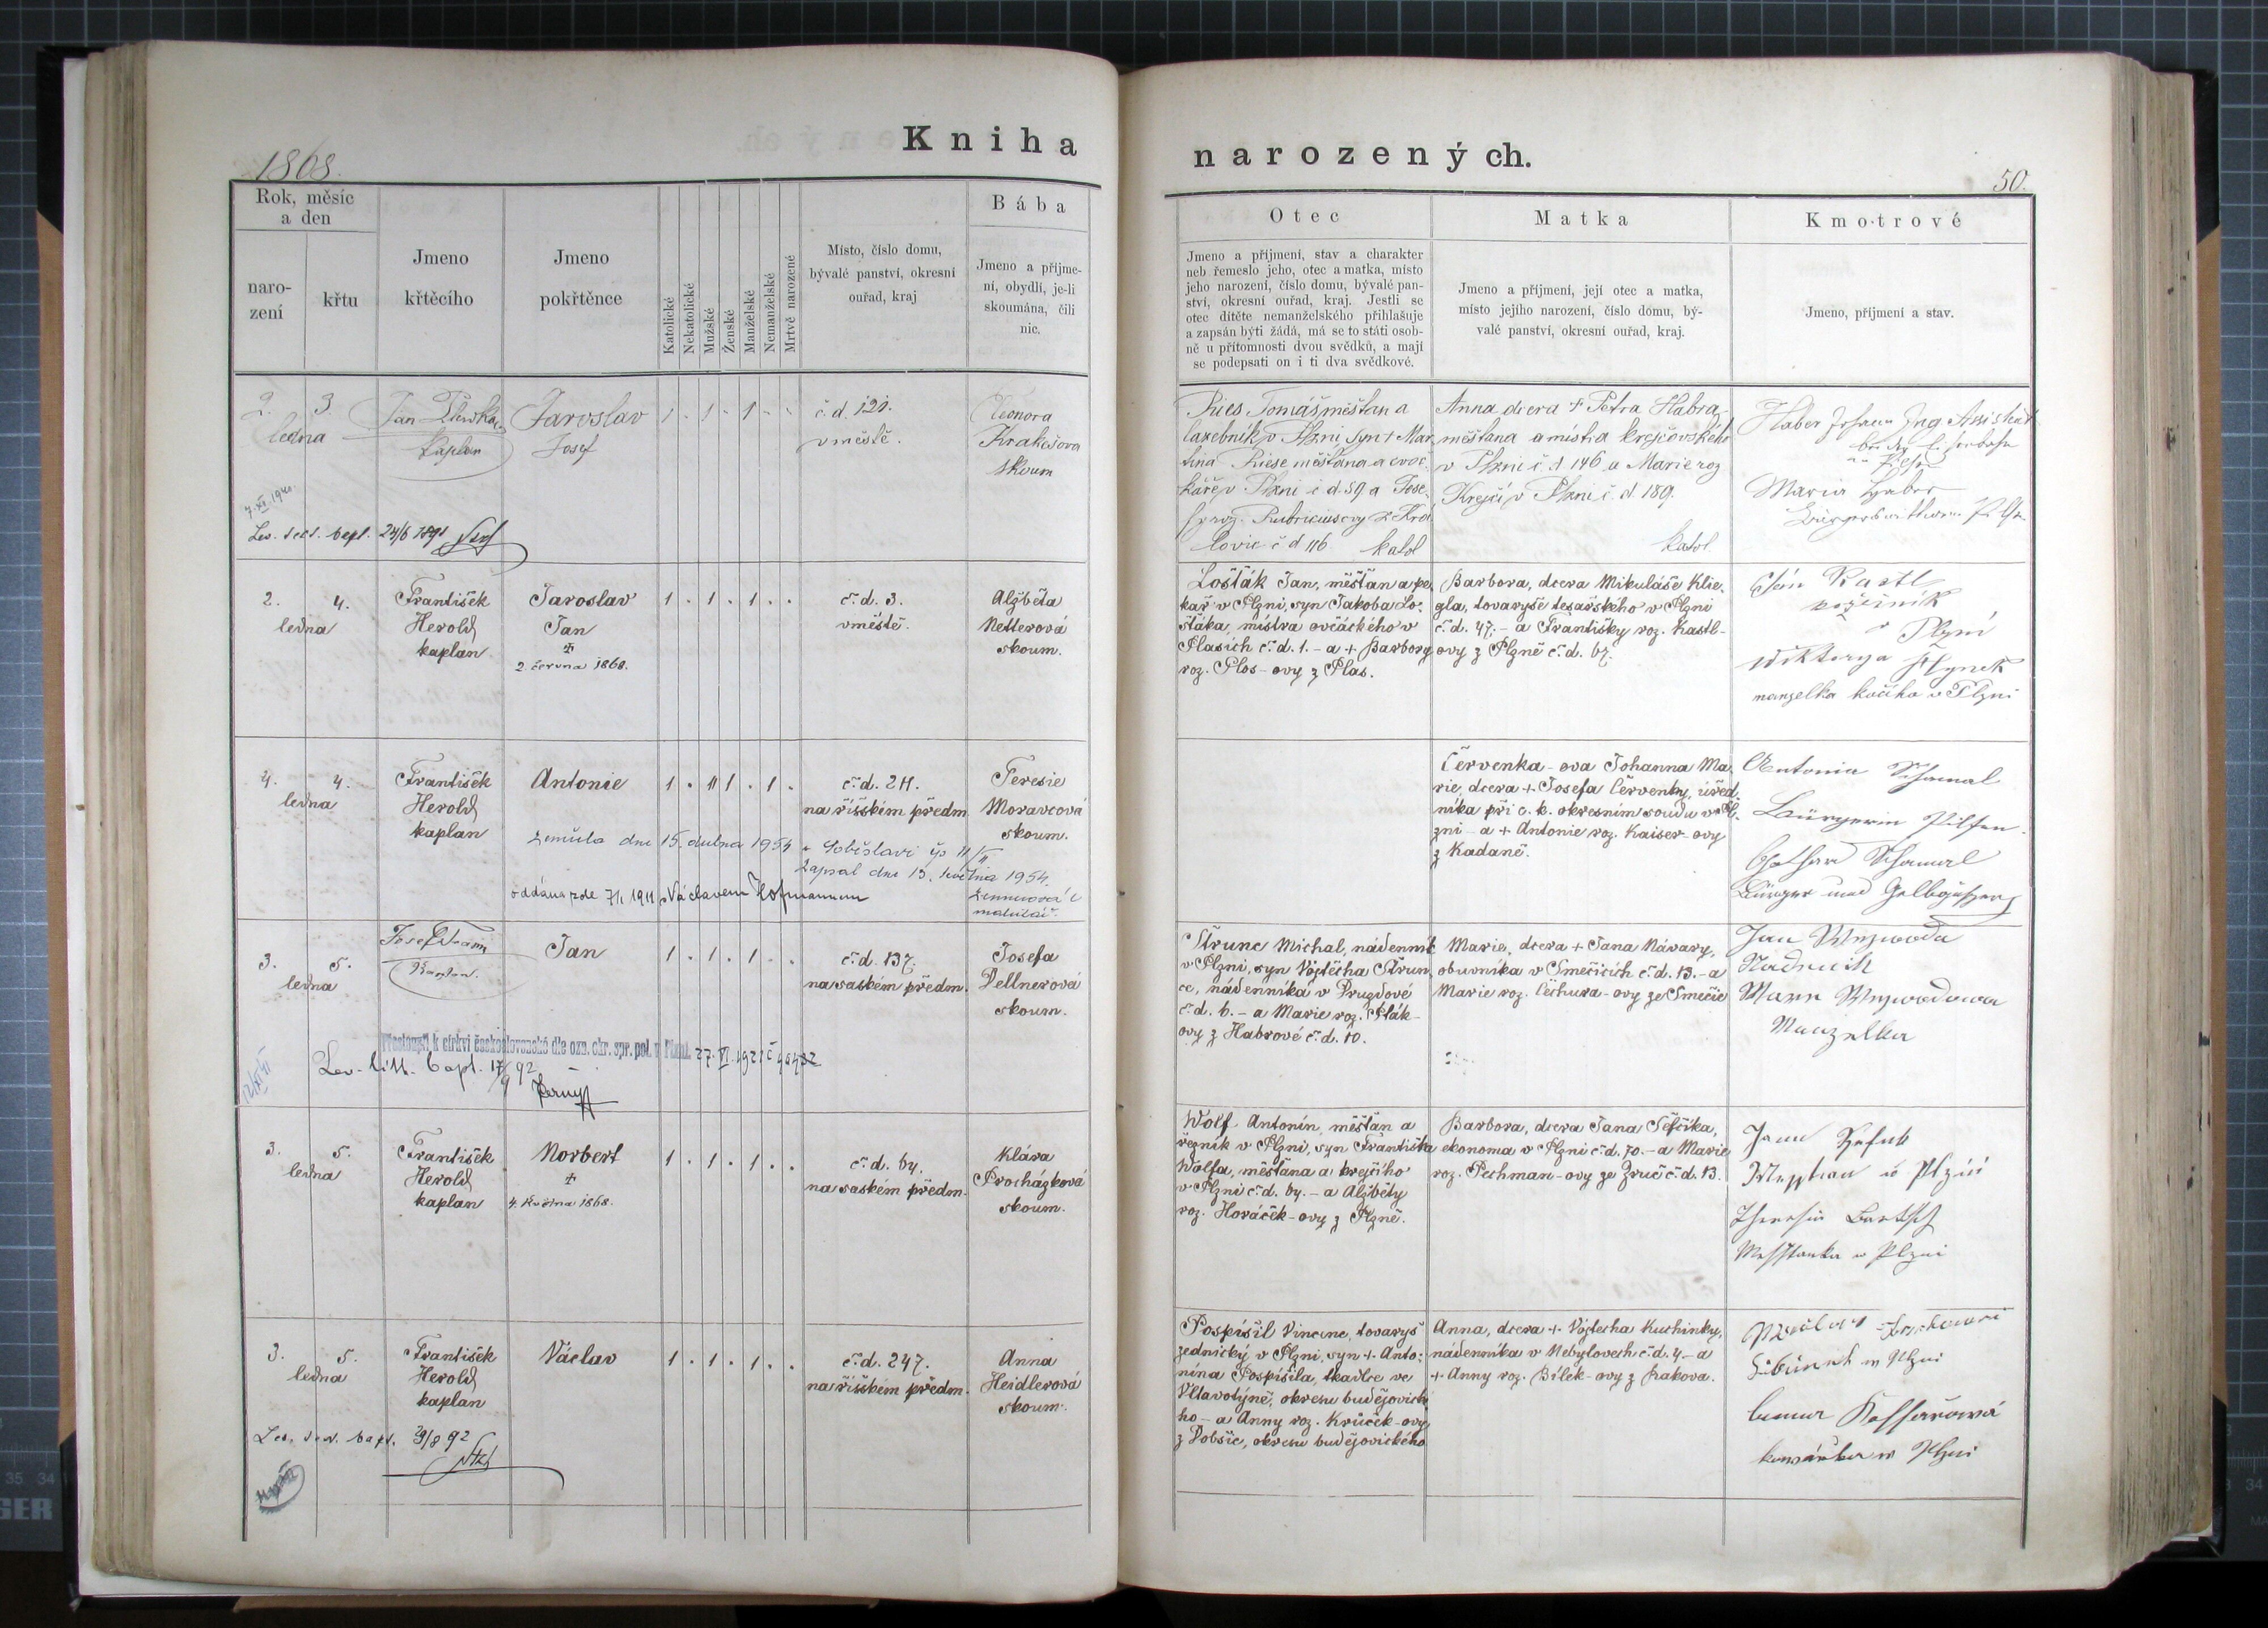 Kniha
narozených.
1868.
50.
Rok, měsíc
a den
naro-
zení
křtu
Jmeno
křtěcího
Jmeno
pokřtěnce
Katolické
Nekatolické
Mužské
Ženské
Manželské
Nemanželské
Mrtvě narozené
Místo, číslo domu,
bývalé panství, okresní
ouřad, kraj
Bába
Jmeno a příjme-
ní, obydlí, je-li
skoumána, čili
nic.
Otec
Jmeno a příjmení, stav a charakter
neb řemeslo jeho, otec a matka, místo
jeho narození, číslo domu, bývalé pan-
ství, okresní ouřad, kraj. Jestli se
otec dítěte nemanželského přihlašuje
a zapsán býti žádá, má se to státi osob-
ně u přítomnosti dvou svědků, a mají
se podepsati on i ti dva svědkové.
Matka
Jmeno a příjmení, její otec a matka,
místo jejího narození, číslo domu, bý-
valé panství, okresní ouřad, kraj.
Kmotrové
Jmeno, příjmení a stav.
2. 3.
ledna
Jan
kaplan
Jaroslav
Josef
1 . 1 . 1 . .
č. d. 121.
v městě.
Eleonora
Krakešova
skoum
7. XI. 1940.
Lev. test. bapt. 24/6 1891
Ries Tomáš měšťan a
lazebník v Plzni, syn + Mar
tina Riese měšťana a
v Plzni č d. 59 a Jose-
fy roz. z Kra
lovic č d 116 katol
Anna dcera + Petra Habra,
měšťana a mistra krejčovského
v Plzni č. d 146 a Marie roz
Krejčí v Plzni č. d. 189.
katol.
Haber Johann Ing Assistent
Maria Haber
2. 4.
ledna
František
Herold
kaplan
Jaroslav
Jan
+
2. června 1868.
1 . 1 . 1 . .
č. d. 3.
v městě.
Alžběta
Netterová
skoum.
Lošťák Jan, měšťan a pe-
kař v Plzni, syn Jakoba Lo-
šťáka, mistra ovčáckého v
Plasích č. d. 1. - a + Barbory
roz. Plos-ovy z Plas.
Barbora, dcera Mikuláše Klie-
gla, tovaryše tesařského v Plzni
č. d. 47. - a Františky roz. Kastl-
ovy z Plzně č. d. 67.
Jan Kastl
v Plzni
Wiktorya Hynek
manzelka kočiho v Plzni
4. 4.
ledna
František
Herold
kaplan
Antonie
1 . 1 1 . 1 .
č. d. 211.
na říšském předm
Teresie
Moravcová
skoum.
zemřela dne 15. dubna 1954 v Soběslavi čp 11/II
Zapsal dne 13. května 1954.
oddána zde 7/1. 1911 s Václavem Hofmannem
matrikář.
Červenka-ova Johanna Ma-
rie, dcera + Josefa Červenky, úřed-
níka při c. k. okresním soudu v Pl-
zni - a + Antonie roz. Kaiser-ovy
z Kadaně.
Antonia Schamal
Bürgerin Pilsen.
Gothard Schamal
Bürger und Gelbgießer
3. 5.
ledna
Josef
Kaplan.
Jan
1 . 1 . 1 . .
č. d. 137.
na saském předm.
Josefa
Dellnerová
skoum.
Přestoupil k církvi československé dle ozn. okr. spr. pol. v Plzni. 27. VI. 1921
Lev. litt. bapt. 17/9 92
Černý
Štrunc Michal, nádenník
v Plzni, syn Vojtěcha Štrun
ce, nádenníka v Drugdové
č. d. 6. - a Marie roz. Pták-
ovy z Habrové č. d. 10.
Marie, dcera + Jana Návary,
obuvníka v Smečicích č. d. 13. - a
Marie roz. Čechura-ovy ze Smečic
Jan Weywoda
Nadenik
Marie Weywodowa
Manzelka
3. 5.
ledna
František
Herold
kaplan
Norbert
+
4. května 1868.
1 . 1 . 1 . .
č. d. 64.
na saském předm.
Klára
Procházková
skoum.
Wolf Antonín, měšťan a
řezník v Plzni, syn Františka
Wolfa, měšťana a krejčího
v Plzni č. d. 64. - a Alžběty
roz. Horáček-ovy z Plzně.
Barbora, dcera Jana Šefčíka,
ekonoma v Plzni č. d. 70. - a Marie
roz. Pechman-ovy ze Zruč č. d. 13.
Theresia Bartsch
w Plzni
3. 5.
ledna
František
Herold
kaplan
Václav
1 . 1 . 1 . .
č. d. 247.
na říšském předm.
Anna
Heidlerová
skoum.
Lev. test. bapt. 29/8 92
Pospíšil Vincenc, tovaryš
zednický v Plzni, syn + Anto-
nína Pospíšila, tkadlce ve
Vltavotýně, okresu budějovické
ho - a Anny roz. Krůček-ovy
z Dobšic, okresu budějovického
Anna, dcera + Vojtěcha Kuchinky,
nádenníka v Nebylovech č. d. 4 - a
+ Anny roz. Bílek-ovy z Rakova.
w Plzni
w Plzni